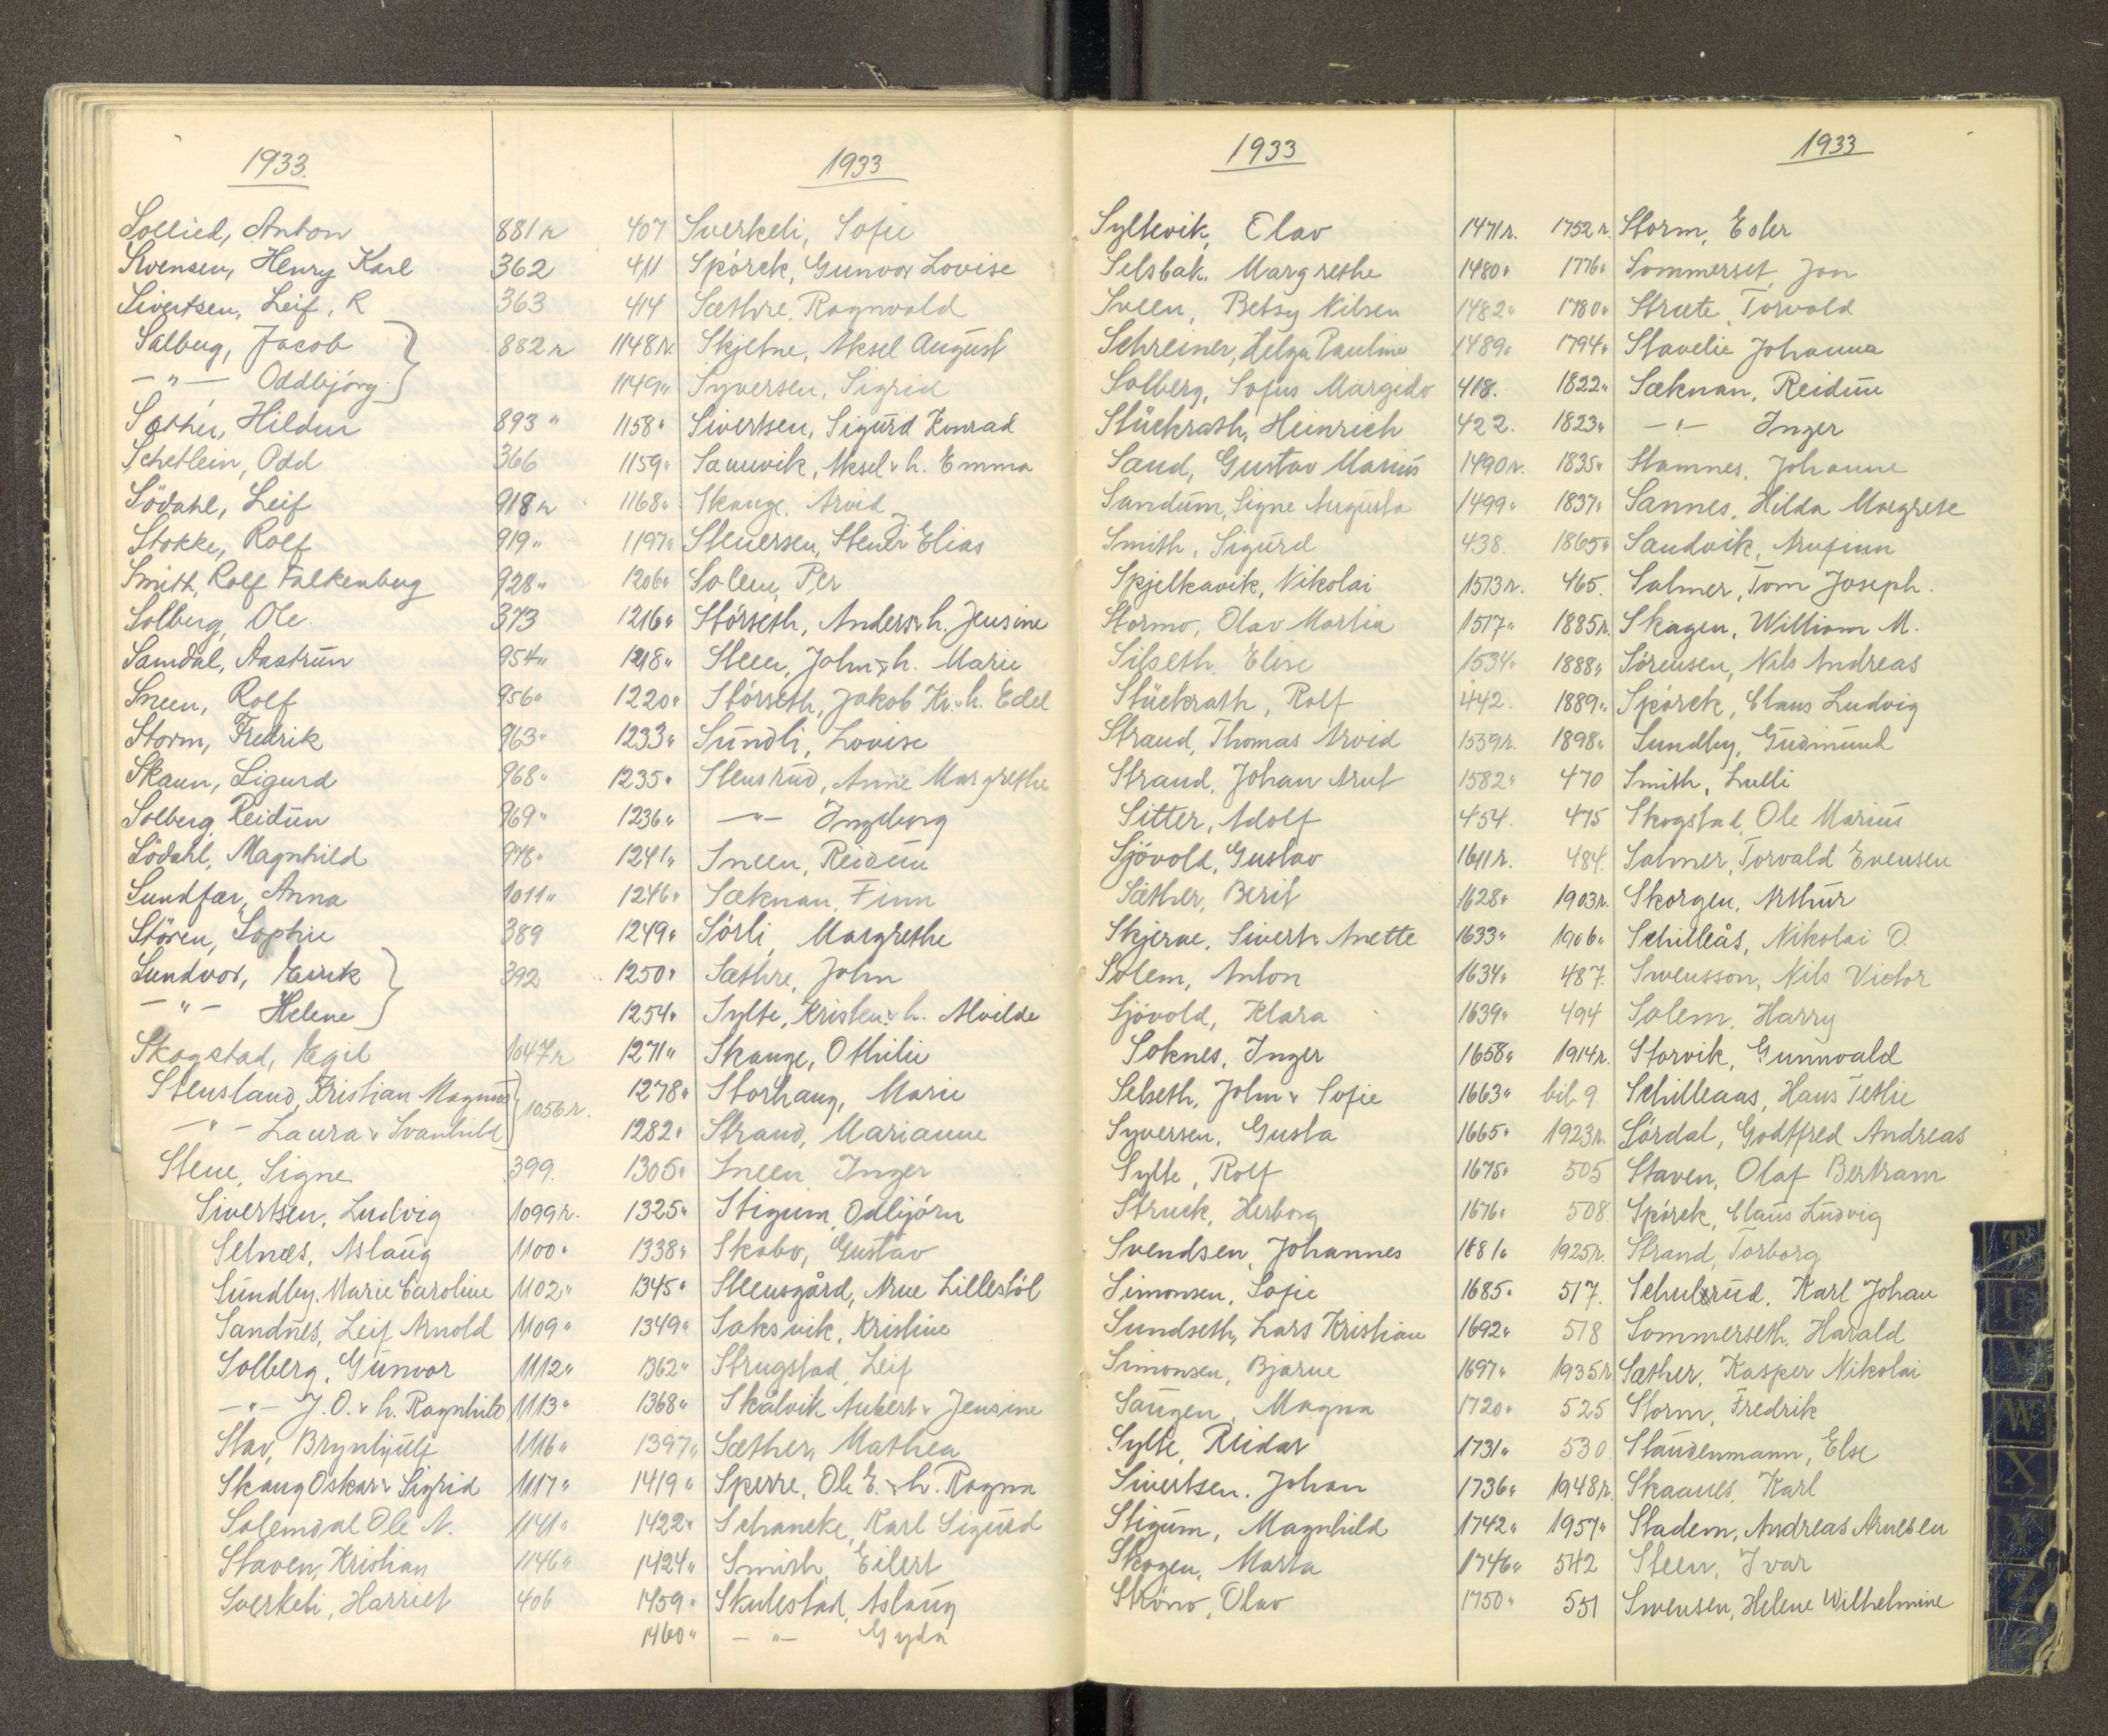 1933.
Sollied, Anton 881 r
Svensen, Henry Karl 362
Sivertsen, Leif, R 363
Salberg, Jacob 882 r
— " — Oddbjörg
Sæther, Hildur 893 "
Schetlein, Odd 366
Södahl, Leif 918 r
Stokke, Rolf 919 "
Smith, Rolf Falkenberg 928 "
Solberg, Ole 373
Samdal, Aastrun 954 "
Sneen, Rolf 956 "
Storm, Fredrik 963 "
Skaun, Sigurd 968 "
Solberg Reidun 969 "
Södahl, Magnhild 978 "
Sundfær, Anna 1011 "
Stören, Sophie 389
Sundvor, Eirik 392
— " — Helene
Skogstad, Egil 1047 r
Stensland, Kristian Magnus 1056 r.
— " — Laura & Svanhild
Stene, Signe 399.
Sivertsen, Ludvig 1099 r.
Selnæs, Aslaug 1100 "
Sundby, Marie Caroline 1102 "
Sandnes, Leif Arnold 1109 "
Solberg, Gunvor 1112 "
— " — J. O. & h. Ragnhild 1113 "
Stav, Brynhjulf 1116 "
Skaug Oskar & Sigrid 1117 "
Solemdal Ole N. 1141 "
Staven, Kristian 1146 "
Sverkeli, Harriet 406
1933
407 Sverkeli, Sofie
411 Spörck, Gunvor Lovise
414 Sæthre, Ragnvald
1148 r. Skjetne, Aksel August
1149 " Syversen, Sigrid
1158 " Sivertsen, Sigurd Konrad
1159 " Saunvik, Aksel & h. Emma
1168 " Skauge, Arvid
1197 " Steuersen, Stener Elias
1206 " Solem, Per
1216 " Störseth, Anders & h. Jensine
1218 " Steen, John & h. Marie
1220 " Störseth, Jakob Kr. & h. Edel
1233 " Sundli, Lovise
1235 " Stensrud, Anne Margrethe
1236 " — " — Ingeborg
1241 " Sneen, Reidun
1246 " Sæknan, Finn
1249 " Sörli, Margrethe
1250 " Sæthre, John
1254 " Sylte, Kristen & h. Alvilde
1271 " Skauge, Othilie
1278 " Storhaug, Marie
1282 " Strand, Marianne
1305 " Sneen Inger
1325 " Stigum, Odbjörn
1338 " Skabo, Gustav
1345 " Steensgård, Arne Lillestöl
1349 " Saksvik, Kristine
1362 " Strugstad, Leif
1368 " Skålvik Aubert & Jensine
1397 " Sæther, Mathea
1419 " Sperre, Ole E. & h. Ragna
1422 " Schancke, Karl Sigurd
1424 " Smith, Eilert
1459 " Skulestad, Aslaug
1460 " — " — Gyda
1933
Syltevik, Olav 1471 r.
Selsbak, Margrethe 1480 "
Sveen, Betsy Nilsen 1482 "
Schreiner, Helga Pauline 1489 "
Solberg, Sofus Margido 418.
Stückrath, Heinrich 422.
Sand, Gustav Marius 1490 r.
Sandum, Signe Augusta 1499 "
Smith, Sigurd 438.
Spjelkavik, Nikolai 1513 r.
Stormo, Olav Martin 1517 "
Silseth, Elise 1534 "
Stückrath, Rolf 442.
Strand, Thomas Arvid 1539 r.
Strand, Johan Arnt 1582 "
Sitter, Adolf 454.
Sjövold, Gustav 1611 r.
Sæther, Berit 1628 "
Skjerve, Sivert & Anette 1633 "
Solem, Anton 1634 "
Sjövold, Klara 1639 "
Soknes, Inger 1658 "
Selseth, John & Sofie 1663 "
Syversen, Gusta 1665 "
Sylte, Rolf 1675 "
Struck, Herborg 1676 "
Svendsen, Johannes 1681 "
Simonsen, Sofie 1685 "
Sundseth, Lars Kristian 1692 "
Simonsen, Bjarne 1697 "
Saugen, Magna 1720 "
Sylte, Reidar 1731 "
Sivertsen, Johan 1736 "
Stigum, Magnhild 1742 "
Skogen, Marta 1746 "
Strönö, Olav 1750 "
1933
1752 r. Storm, Edler
1776 " Sommerset, Jon
1780 " Strute, Torvald
1794 " Stavelie Johanna
1822 " Sæknan, Reidun
1823 " — " — Inger
1835 " Stamnes, Johanne
1837 " Sannes, Hilda Margrete
1865 " Sandvik, Arnfinn
465. Salmer, Tom Joseph.
1885 r. Skagen, William M.
1888 " Sörensen, Nils Andreas
1889 " Spörck, Claus Ludvig
1898 " Sundby, Gudmund
470 Smith, Lulli
475 Skogstad, Ole Marius
484. Salmer, Torvald Evensen
1903 r. Skorgen, Arthur
1906 " Schilleås, Nikolai O.
487. Swensson, Nils Victor
494 Solem, Harry
1914 r. Storvik, Gunnvald
bil. 9 Schilleaas, Hans Tetlie
1923 r. Sördal, Godtfred Andreas
505 Staven, Olaf Bertram
508. Spörck, Claus Ludvig
1925 r. Strand, Torborg
517. Schulerud, Karl Johan
518 Sommerseth, Harald
1935 r Sæther, Kasper Nikolai
525 Storm, Fredrik
530 Staudenmann, Else
1948 r. Skaanes, Karl
1957 " Stadem, Andreas Arnesen
542 Steen, Ivar
551 Swensen, Helene Wilhelmine
T
U
V
W
X
Y
Z